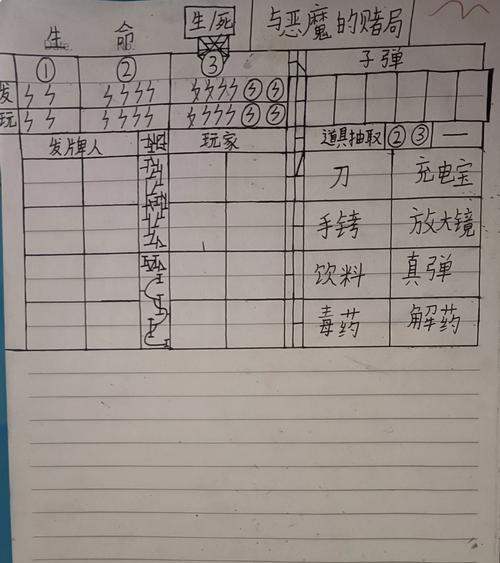 生命 生/死 与恶魔的赌局
① ② ③ 子弹
发
玩
发牌人 玩家 道具抽取 ② ③ 一
刀 充电宝
手铐 放大镜
饮料 真弹
毒药 解药